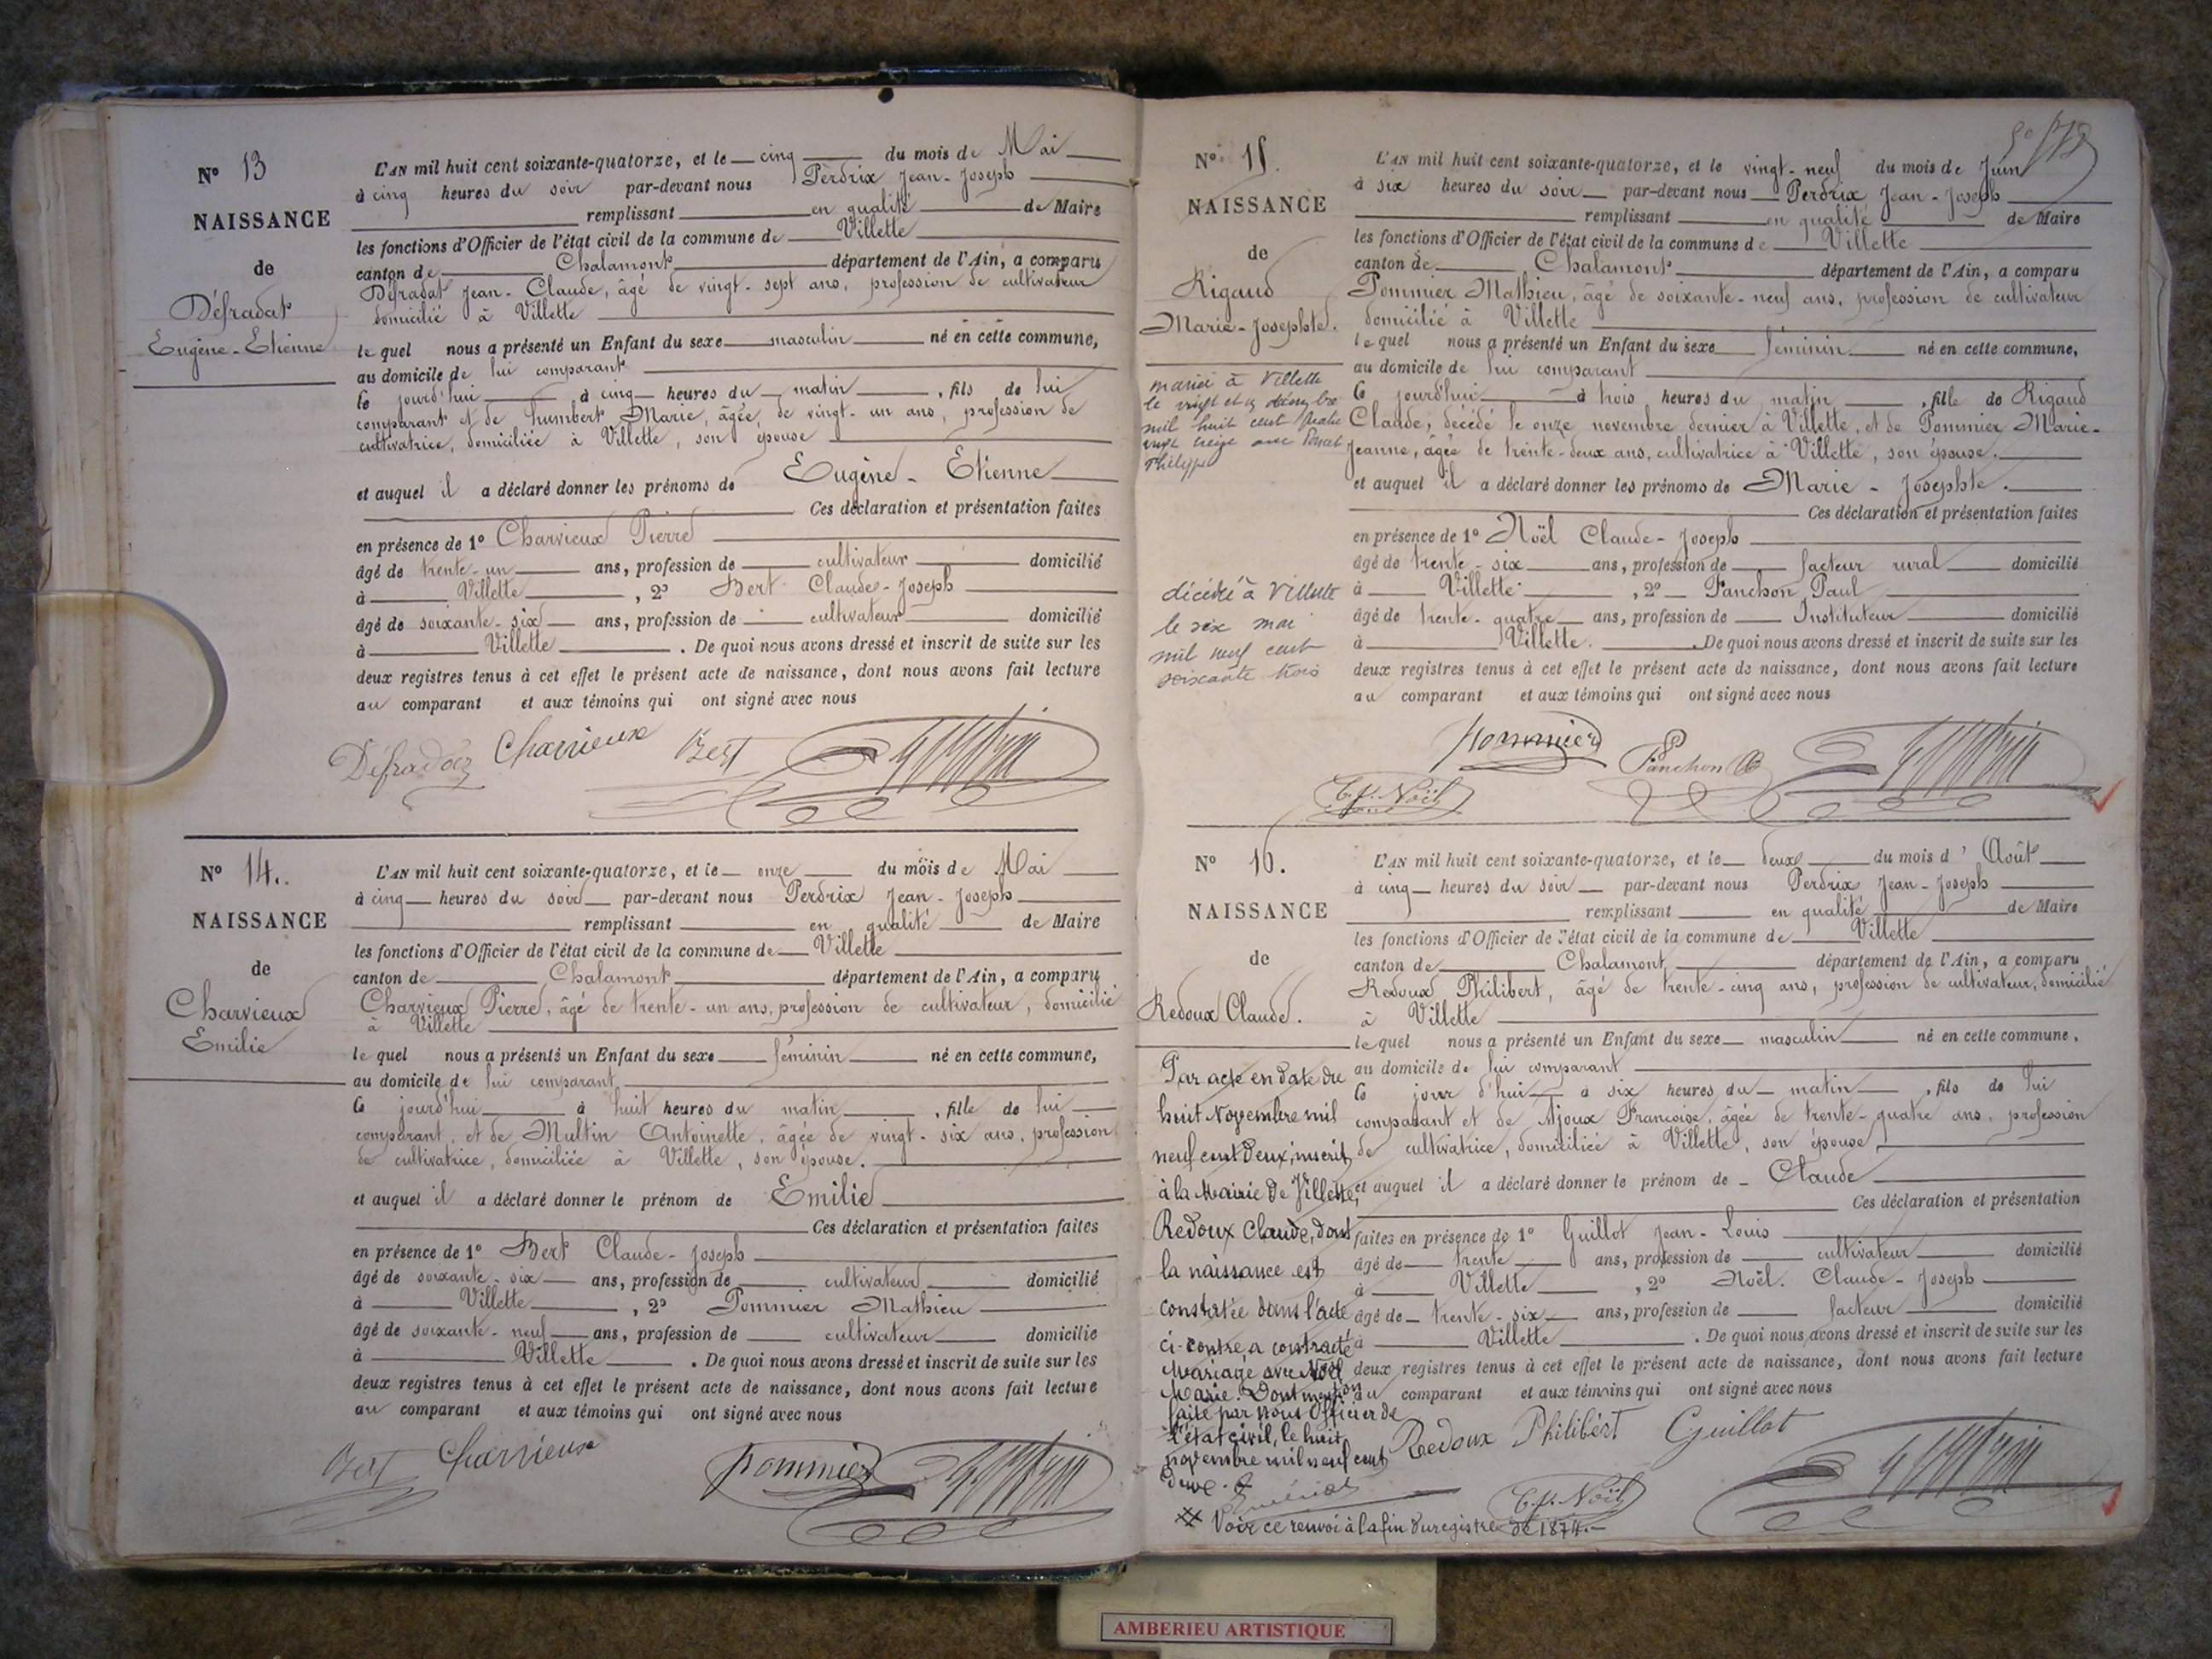 N° 13
NAISSANCE
de
Défradat
Eugène-Etienne
L'AN mil huit cent soixante-quatorze, et le cinq du mois de Mai
à cinq heures du soir par-devant nous Perdrix Jean-Joseph
remplissant en qualité de Maire
les fonctions d'Officier de l'état civil de la commune de Villette
canton de Chalamont département de l'Ain, a comparu
Défradat Jean-Claude, âgé de vingt-sept ans, profession de cultivateur
domicilié à Villette
lequel nous a présenté un Enfant du sexe masculin né en cette commune,
au domicile de lui comparant
ce jourd'hui à cinq heures du matin, fils de lui
comparant et de humbert Marie, âgée de vingt-un ans, profession de
cultivatrice, domiciliée à Villette, son épouse
et auquel il a déclaré donner les prénoms de Eugène-Etienne
Ces déclaration et présentation faites
en présence de 1° Charvieux Pierre
âgé de trente-un ans, profession de cultivateur domicilié
à Villette, 2° Bert Claude-Joseph
âgé de soixante-six ans, profession de cultivateur domicilié
à Villette. De quoi nous avons dressé et inscrit de suite sur les
deux registres tenus à cet effet le présent acte de naissance, dont nous avons fait lecture
au comparant et aux témoins qui ont signé avec nous
Charvieux Bert
N° 14.
NAISSANCE
de
Charvieux
Emilie
L'AN mil huit cent soixante-quatorze, et le onze du mois de Mai
à cinq heures du soir par-devant nous Perdrix Jean-Joseph
remplissant en qualité de Maire
les fonctions d'Officier de l'état civil de la commune de Villette
canton de Chalamont département de l'Ain, a comparu
Charvieux Pierre, âgé de trente-un ans, profession de cultivateur, domicilié
à Villette
lequel nous a présenté un Enfant du sexe féminin né en cette commune,
au domicile de lui comparant
ce jourd'hui à huit heures du matin, fille de lui
comparant, et de Multin Antoinette, âgée de vingt-six ans, profession
de cultivatrice, domiciliée à Villette, son épouse.
et auquel il a déclaré donner le prénom de Emilie
Ces déclaration et présentation faites
en présence de 1° Bert Claude-Joseph
âgé de soixante-six ans, profession de cultivateur domicilié
à Villette, 2° Pommier Mathieu
âgé de soixante-neuf ans, profession de cultivateur domicilié
à Villette. De quoi nous avons dressé et inscrit de suite sur les
deux registres tenus à cet effet le présent acte de naissance, dont nous avons fait lecture
au comparant et aux témoins qui ont signé avec nous
Bert Charvieux Pommier
N° 15.
NAISSANCE
de
Rigaud
Marie-Josephte.
mariée à Villette
le vingt et un décembre
mil huit cent quatre
vingt treize avec Poncet
Philippe
décédé à Villette
le six mai
mil neuf cent
soixante trois
L'AN mil huit cent soixante-quatorze, et le vingt-neuf du mois de Juin
à six heures du soir par-devant nous Perdrix Jean-Joseph
remplissant en qualité de Maire
les fonctions d'Officier de l'état civil de la commune de Villette
canton de Chalamont département de l'Ain, a comparu
Pommier Mathieu, âgé de soixante-neuf ans, profession de cultivateur
domicilié à Villette
lequel nous a présenté un Enfant du sexe féminin né en cette commune,
au domicile de lui comparant
ce jourd'hui à trois heures du matin, fille de Rigaud
Claude, décédé le onze novembre dernier à Villette, et de Pommier Marie-
Jeanne, âgée de trente-deux ans, cultivatrice à Villette, son épouse.
et auquel il a déclaré donner les prénoms de Marie-Josephte.
Ces déclaration et présentation faites
en présence de 1° Noël Claude-Joseph
âgé de trente-six ans, profession de facteur rural domicilié
à Villette, 2° Panchon Paul
âgé de trente-quatre ans, profession de Instituteur domicilié
à Villette. De quoi nous avons dressé et inscrit de suite sur les
deux registres tenus à cet effet le présent acte de naissance, dont nous avons fait lecture
au comparant et aux témoins qui ont signé avec nous
Pommier Panchon
C. J. Noël
N° 16.
NAISSANCE
de
Redoux Claude.
Par acte en date du
huit Novembre mil
neuf cent deux, inscrit
à la Mairie de Villette,
Redoux Claude, dont
la naissance est
constatée dans l'acte
ci-contre a contracté
Mariage avec Noël
Marie. Dont mention
faite par nous Officier de
l'état civil, le huit
novembre mil neuf cent
deux.
Voir ce renvoi à la fin du registre de 1874.
L'AN mil huit cent soixante-quatorze, et le deux du mois d'Août
à cinq heures du soir par-devant nous Perdrix Jean-Joseph
remplissant en qualité de Maire
les fonctions d'Officier de l'état civil de la commune de Villette
canton de Chalamont département de l'Ain, a comparu
Redoux Philibert, âgé de trente-cinq ans, profession de cultivateur, domicilié
à Villette
lequel nous a présenté un Enfant du sexe masculin né en cette commune,
au domicile de lui comparant
ce jour d'hui à six heures du matin, fils de lui
comparant et de Ajoux Françoise, âgée de trente-quatre ans, profession
de cultivatrice, domiciliée à Villette, son épouse,
et auquel il a déclaré donner le prénom de Claude
Ces déclaration et présentation
faites en présence de 1° Guillot Jean-Louis
âgé de trente ans, profession de cultivateur domicilié
à Villette, 2° Noël. Claude-Joseph
âgé de trente-six ans, profession de facteur domicilié
à Villette. De quoi nous avons dressé et inscrit de suite sur les
deux registres tenus à cet effet le présent acte de naissance, dont nous avons fait lecture
au comparant et aux témoins qui ont signé avec nous
Redoux Philibert Guillot
C. J. Noël
AMBERIEU ARTISTIQUE